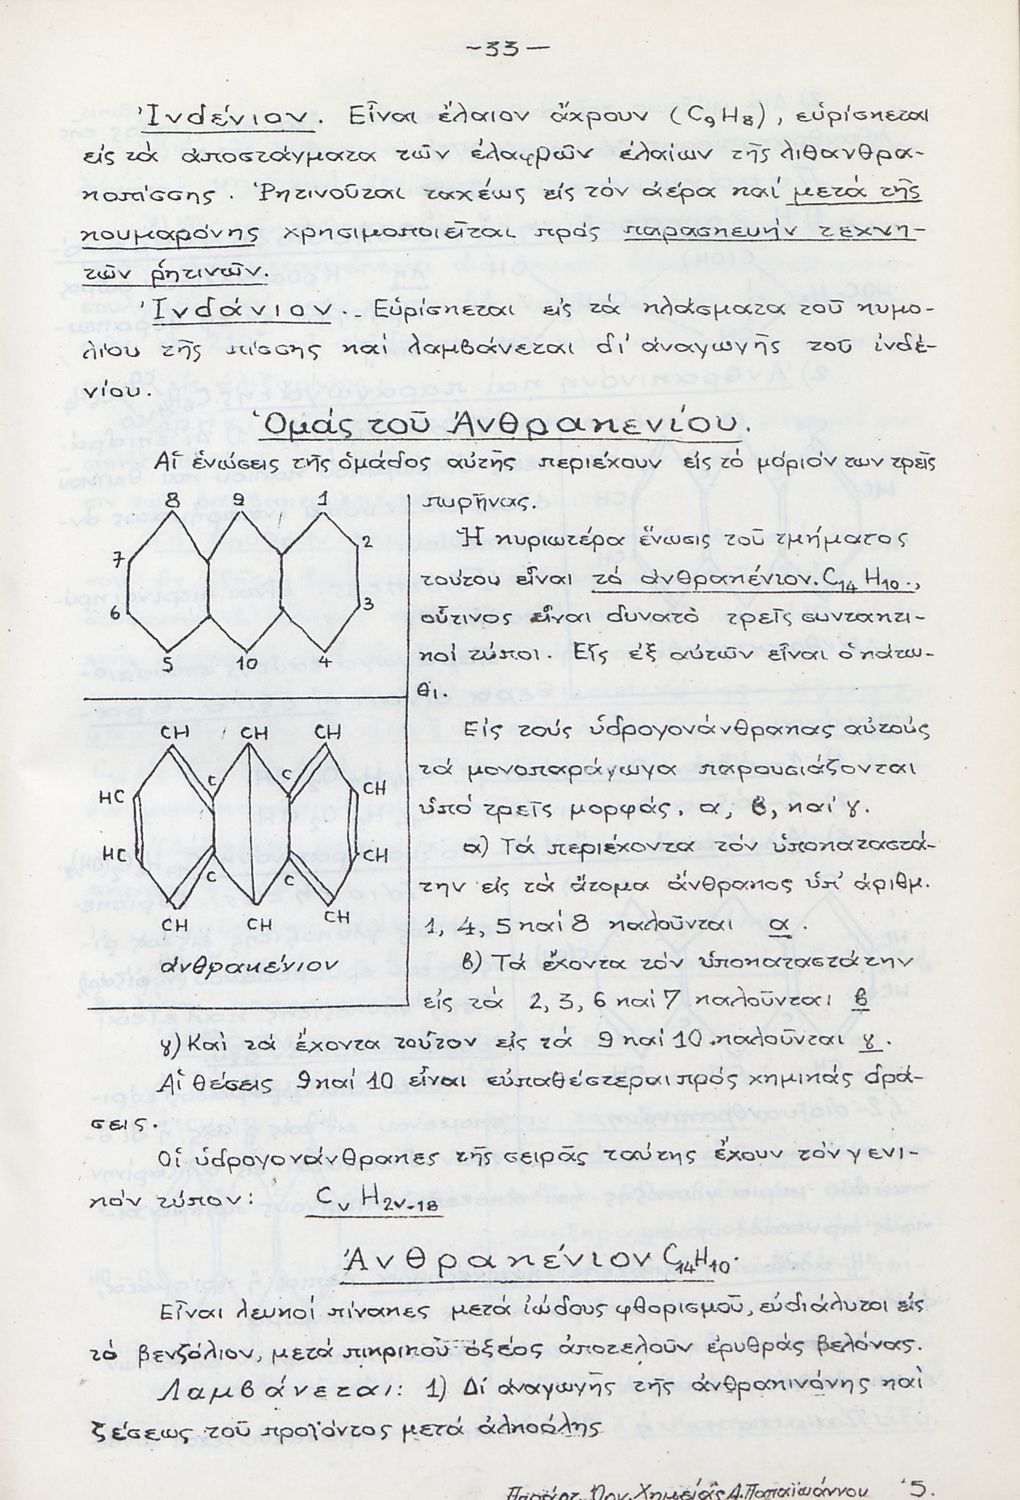 -33-
Ἰνδένιον. Εἶναι ἔλαιον ἄχρουν (C9H8), εὑρίσκεται
εἰς τά ἀποστάγματα τῶν ἐλαφρῶν ἐλαίων τῆς λιθανθρα-
κοπίσσης. Ῥητινοῦται ταχέως εἰς τόν ἀέρα καί μετά τῆς
κουμαρόνης χρησιμοποιεῖται πρός παρασκευήν τεχνη-
τῶν ῥητινῶν.
Ἰνδάνιον.- Εὑρίσκεται εἰς τά κλάσματα τοῦ κυμο-
λίου τῆς πίσσης καί λαμβάνεται δι' ἀναγωγῆς τοῦ ἰνδε-
νίου.
Ὁμάς τοῦ Ἀνθρακενίου.
Αἱ ἑνώσεις τῆς ὁμάδος αὐτῆς περιέχουν εἰς τό μόριόν των τρεῖς
πυρῆνας.
Ἡ κυριωτέρα ἕνωσις τοῦ τμήματος
τούτου εἶναι τό ἀνθρακένιον. C14H10.,
οὗτινος εἶναι δυνατό τρεῖς συντακτι-
κοί τύποι. Εἷς ἐξ αὐτῶν εἶναι ὁ κάτω-
θι.
8 9 1
7 2
6 3
5 10 4
Εἰς τούς ὑδρογονάνθρακας αὐτούς
τά μονοπαράγωγα παρουσιάζονται
ὑπό τρεῖς μορφάς. α, β, καί γ.
α) Τά περιέχοντα τόν ὑποκαταστά-
την εἰς τά ἄτομα ἄνθρακος ὑπ' ἀριθμ.
1, 4, 5 καί 8 καλοῦνται α.
β) Τά ἔχοντα τόν ὑποκαταστάτην
εἰς τά 2, 3, 6 καί 7 καλοῦνται β
CH CH CH
C C
HC CH
HC CH
C C
CH CH CH
ἀνθρακένιον
γ) Καί τά ἔχοντα τοῦτον εἰς τά 9 καί 10 καλοῦνται γ.
Αἱ θέσεις 9 καί 10 εἶναι εὐπαθέστεραι πρός χημικάς δρά-
σεις.
Οἱ ὑδρογονάνθρακες τῆς σειρᾶς ταύτης ἔχουν τόν γενι-
κόν τύπον: Cν H2ν-18
Ἀνθρακένιον C14H10.
Εἶναι λευκοί πίνακες μετά ἰώδους φθορισμοῦ, εὐδιάλυτοι εἰς
τό βενζόλιον, μετά πικρικοῦ ὀξέος ἀποτελοῦν ἐρυθράς βελόνας.
Λαμβάνεται: 1) Δι' ἀναγωγῆς τῆς ἀνθρακινόνης καί
ζέσεως τοῦ προϊόντος μετά ἀλκοόλης
Ὀργ. Χημείας Α. Παπαϊωάννου 5.